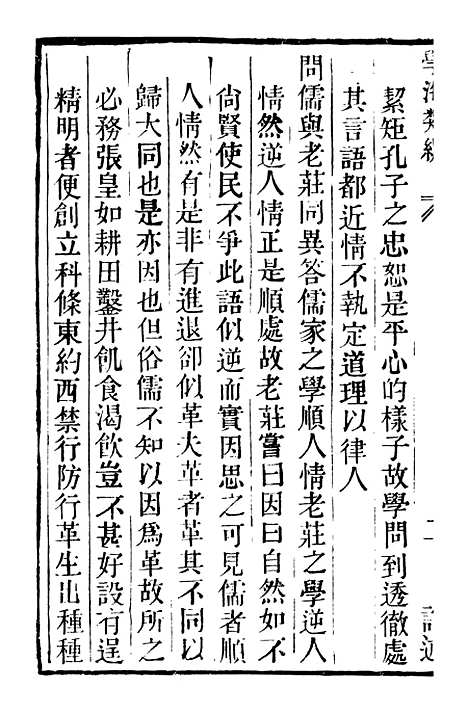 學海類編
二
絜矩孔子之忠恕是平心的樣子故學問到透徹處
其言語都近情不執定道理以律人
問儒與老莊同異答儒家之學順人情老莊之學逆人
情然逆人情正是順處故老莊嘗曰因曰自然如不
尙賢使民不爭此語似逆而實因思之可見儒者順
人情然有是非有進退卻似革夫革者革其不同以
歸大同也是亦因也但俗儒不知以因爲革故所之
必務張皇如耕田鑿井飢食渴飮豈不甚好設有逞
精明者便創立科條東約西禁行防行革生出種種